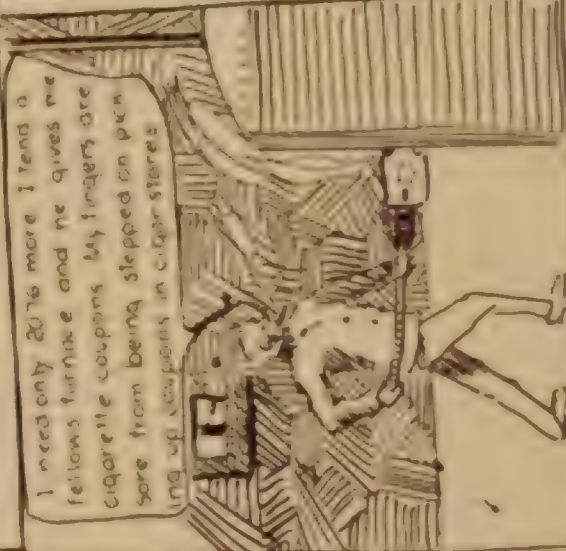 I need only 2076 more I tend a
fellows furnace and he gives me
cigarette coupons. My fingers are
sore from being stepped on pick
ing up coupons in cigar stores